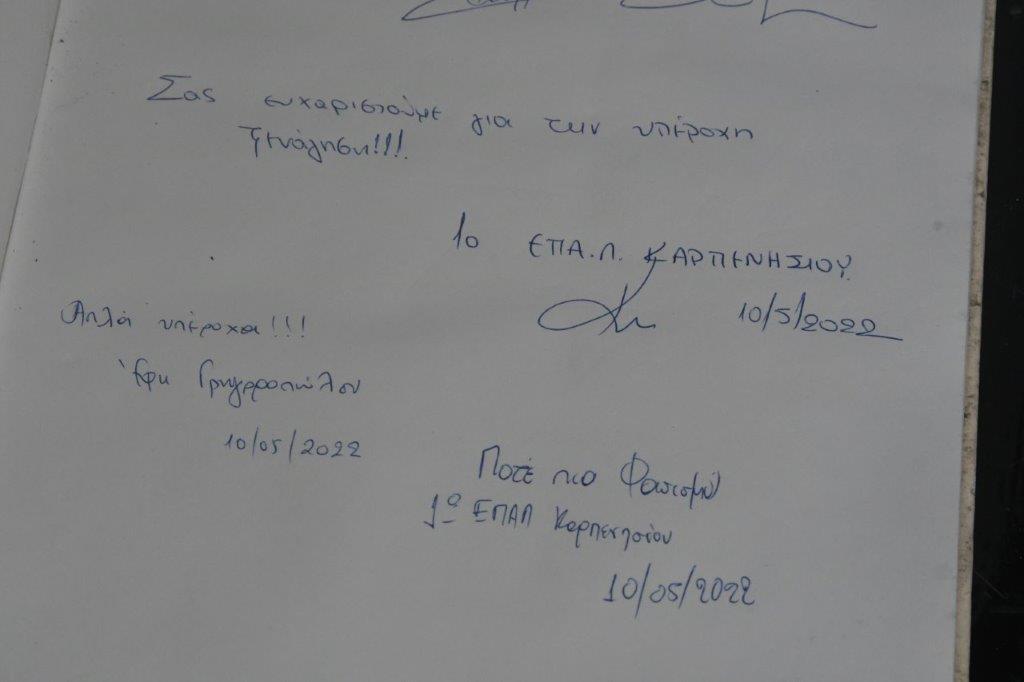 Σας ευχαριστούμε για την υπέροχη
ξενάγηση!!!
1ο ΕΠΑ.Λ. ΚΑΡΠΕΝΗΣΙΟΥ
10/5/2022
Απλά υπέροχα!!!
Έφη Γρηγοροπούλου
10/05/2022
Ποτέ πια Φασισμό
1ο ΕΠΑΛ Καρπενησίου
10/05/2022